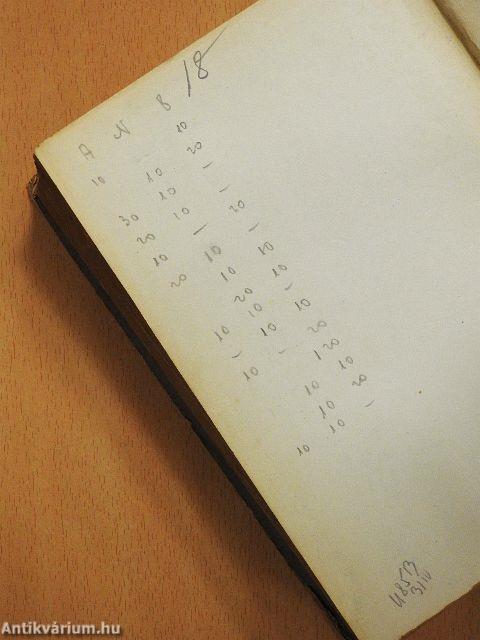 A N B /8
10 10
10 20
30 10 –
20 10 –
10 – 20
20 10 –
10 10
20 10
10 10 –
– 10 10
10 – 20
120
10 10
10 20
10 10 –
Antikvárium.hu